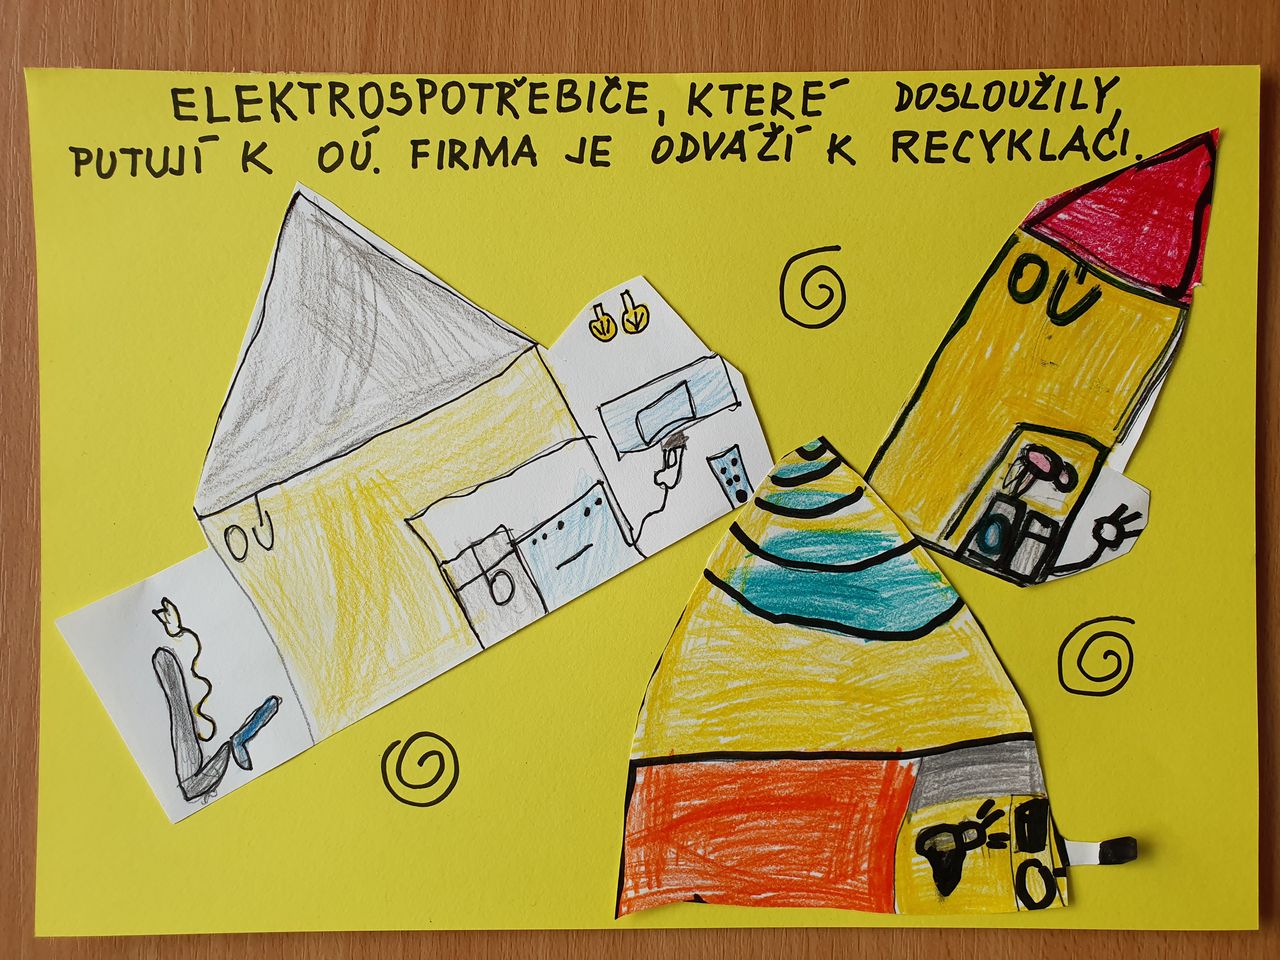 ELEKTROSPOTŘEBIČE, KTERÉ DOSLOUŽILY,
PUTUJÍ K OÚ. FIRMA JE ODVÁŽÍ K RECYKLACI.
OÚ
OÚ